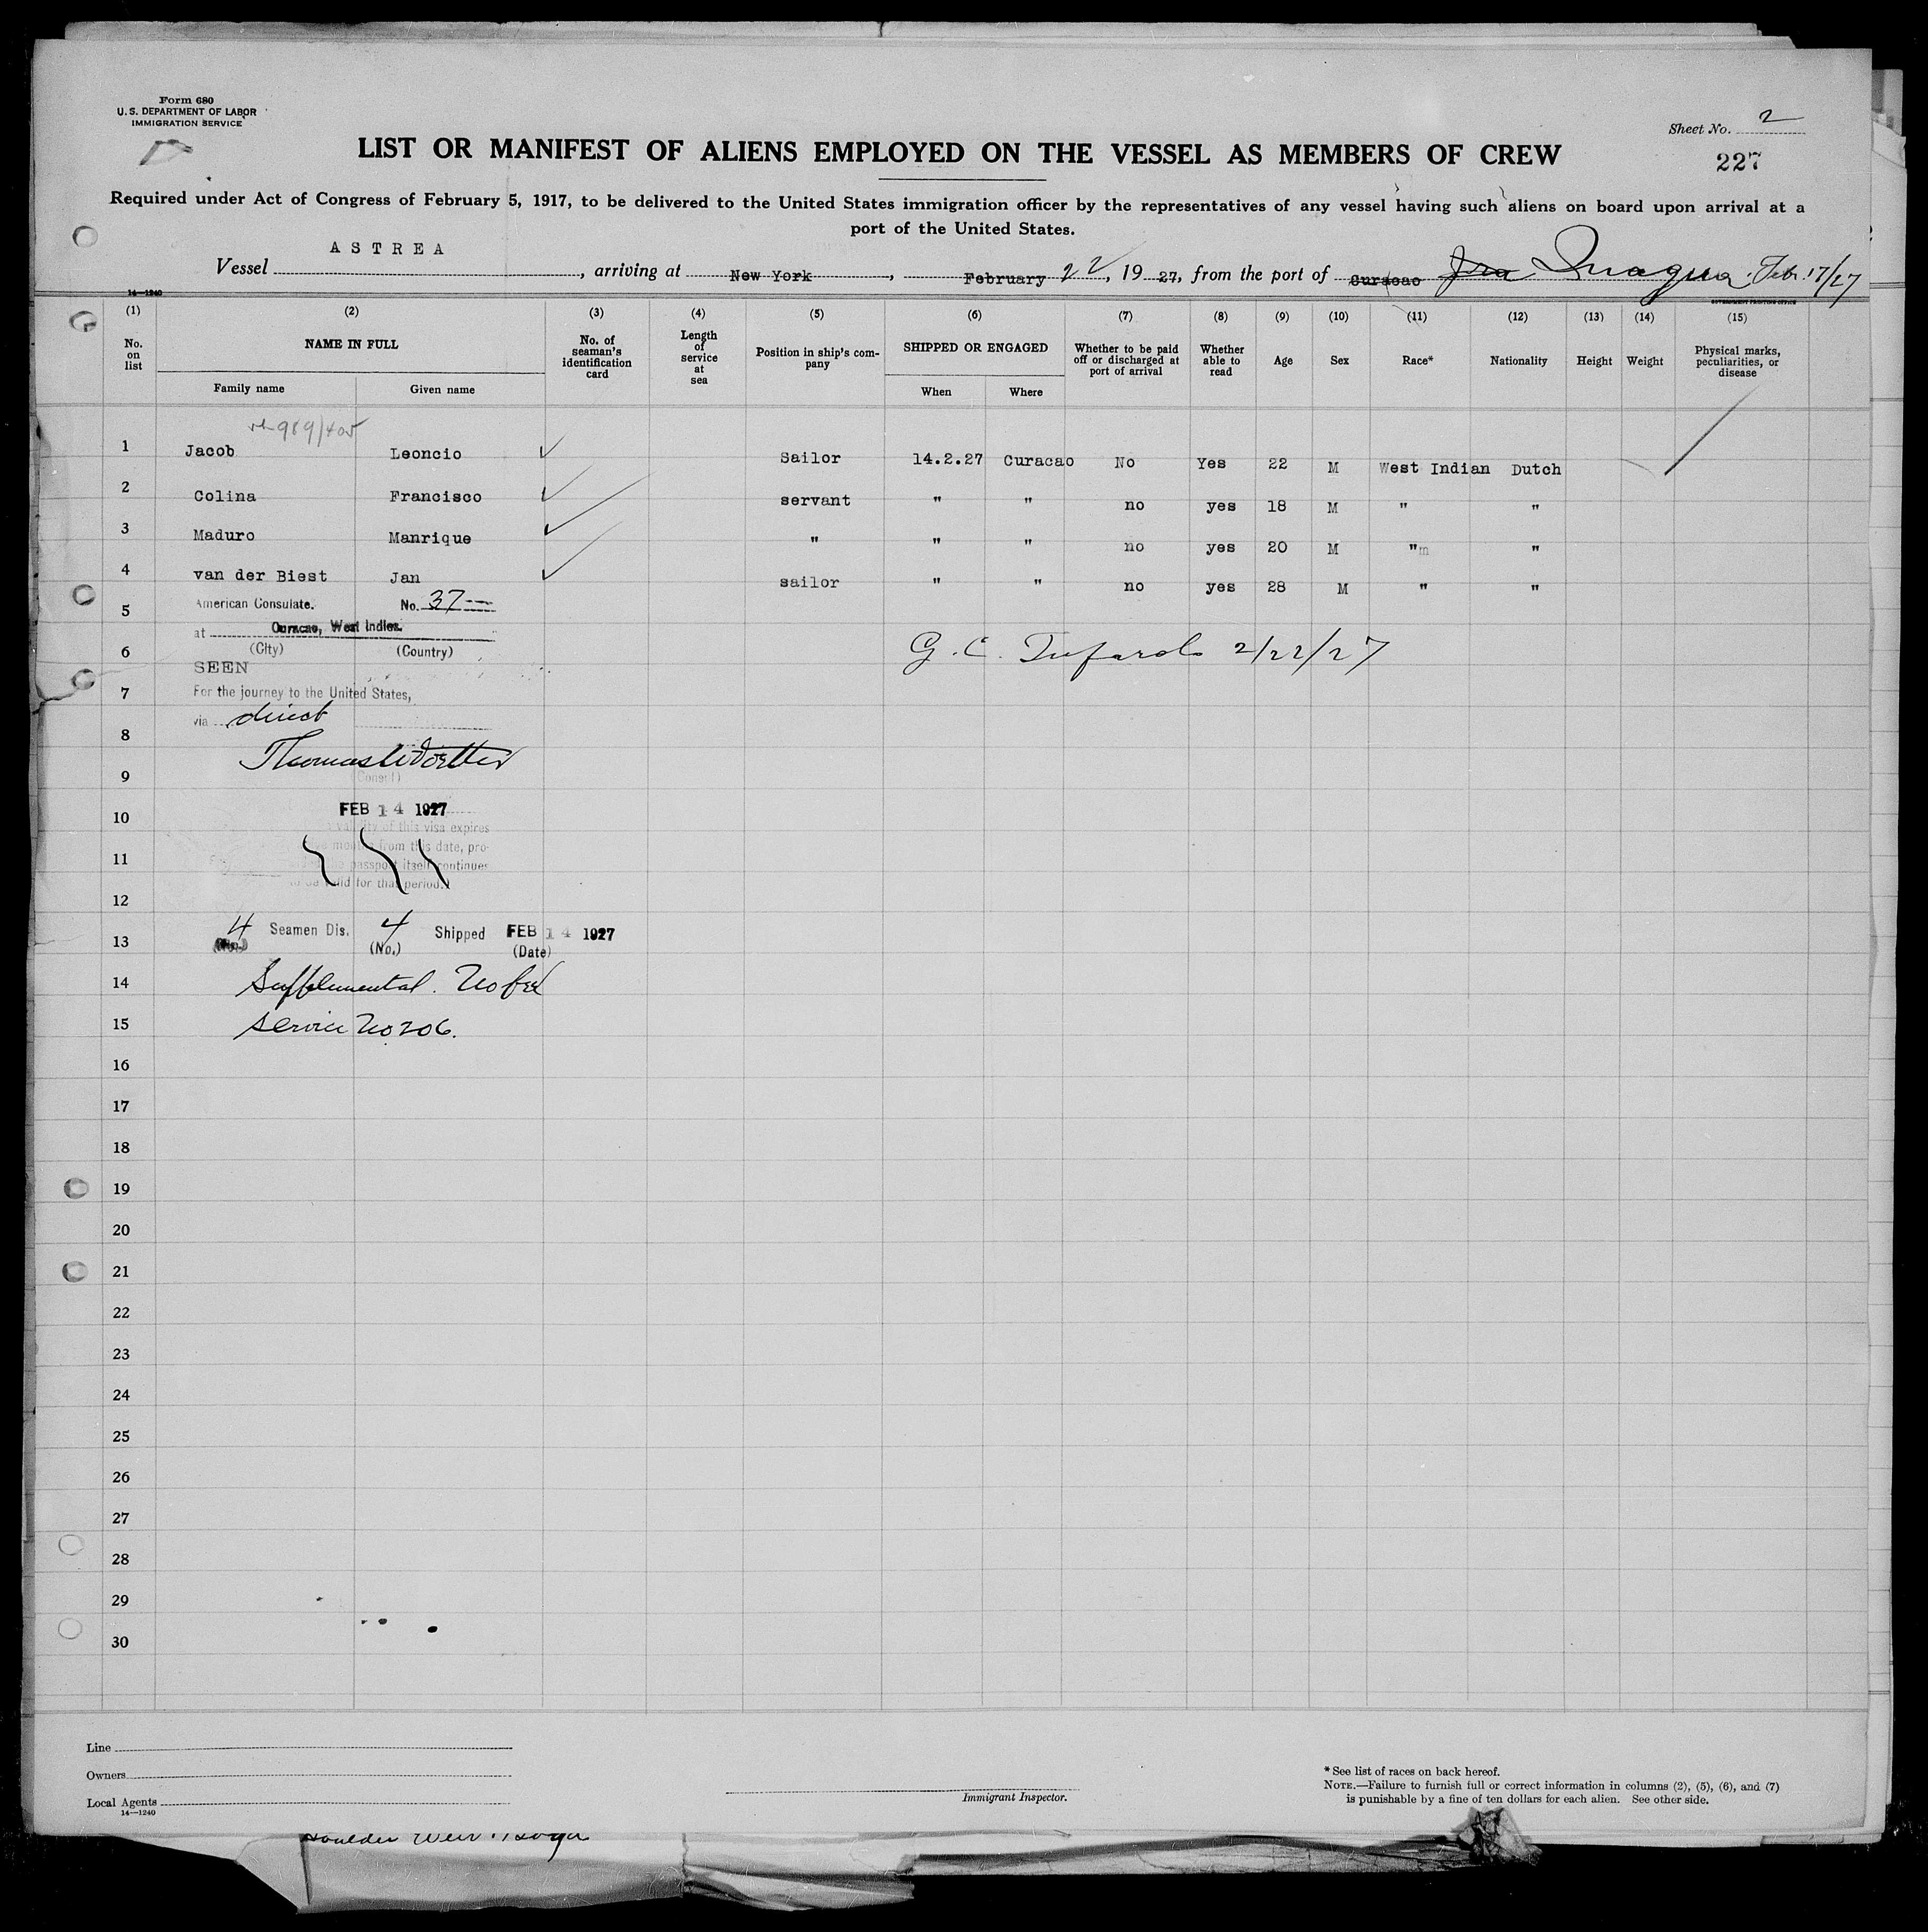 Form 680
U. S. DEPARTMENT OF LABOR
IMMIGRATION SERVICE
Sheet No. 2
LIST OR MANIFEST OF ALIENS EMPLOYED ON THE VESSEL AS MEMBERS OF CREW
227
Required under Act of Congress of February 5, 1917, to be delivered to the United States immigration officer by the representatives of any vessel having such aliens on board upon arrival at a
port of the United States.
Vessel ASTREA, arriving at New York, February 22, 1927, from the port of Curacao Inagua Feb. 17/27
14—1240
GOVERNMENT PRINTING OFFICE
(1) (2) (3) (4) (5) (6) (7) (8) (9) (10) (11) (12) (13) (14) (15)
No. on list
NAME IN FULL
Family name
Given name
No. of seaman's identification card
Length of service at sea
Position in ship's company
SHIPPED OR ENGAGED
When
Where
Whether to be paid off or discharged at port of arrival
Whether able to read
Age
Sex
Race*
Nationality
Height
Weight
Physical marks, peculiarities, or disease
989/405
1 Jacob Leoncio Sailor 14.2.27 Curacao No Yes 22 M West Indian Dutch
2 Colina Francisco servant " " no yes 18 M " "
3 Maduro Manrique " " " no yes 20 M "m "
4 van der Biest Jan sailor " " no yes 28 M " "
5 American Consulate. No. 37—
at Curacao, West Indies.
6 (City) (Country)
G. C. 2/22/27
SEEN
7 For the journey to the United States,
via direct
8
9 (Consul)
10 FEB 14 1927
validity of this visa expires
11 months from this date, pro-
passport itself continues
to be valid for that period.)
12
13 4 Seamen Dis. 4 Shipped FEB 14 1927
(No.) (No.) (Date)
14 Supplemental. No fee
15 Service No 206.
16
17
18
19
20
21
22
23
24
25
26
27
28
29
30
Line
Owners
Local Agents
14—1240
Immigrant Inspector.
* See list of races on back hereof.
NOTE.—Failure to furnish full or correct information in columns (2), (5), (6), and (7)
is punishable by a fine of ten dollars for each alien. See other side.